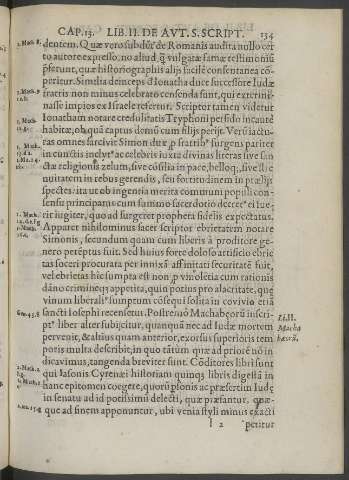 CAP. 13. LIB. II. DE AVT. S. SCRIPT. 134
dentem. Quæ vero subdūtʳ de Romanis audita nullo cer
to autore expresso, no aliud, ꝗ vulgatæ famæ testimoniū
p̄ferunt, quæ historiographis alijs facile consentanea cō
peritur. Similia deinceps d Ionatha duce successore Iudæ
fratris non minus celebrato censenda sunt, qui extermi-
nasse impios ex Israele refertur. Scriptor tamen videtur
Ionatham notare credulitatis Tryphoni perfido incautè
habitæ, ob quā captus domū cum filijs perijt. Verū iactu-
ras omnes sarcivit Simon dux ꝓ fratribˢ surgens pariter
in cunctis inclytˢ ac celebris iuxta divinas literas sive san
ctæ religionis zelum, sive cōsilia in pace, belloq;, sive stre
nuitatem in rebus gerendis, seu fortitudinem in prælijs
spectes: ita ut ob ingenia merita communi populi con-
sensu principatus cum summo sacerdotio decretˢ ei fue-
rit iugiter, quoad surgeret propheta fidelis expectatus.
Apparet nihilominus facer scriptor ebrietatem notare
Simonis, secundum quam cum liberis à proditore ge-
nero perēptus fuit. Sed huius forte doloso artificio ebrie
tas soceri procurata per innixā affinitati securitatē fuit,
vel ebrietas hic sumpta est non ꝓ vinolētia cum rationis
dāno criminosa appetita, quin potius pro alacritate, quæ
vinum liberaliˢ sumptum cōseqʳ solita in covivio etiā
sancti Iosephi recensetur. Postremò Machabęorū inscri-
ptˢ liber alter subijcitur, quanquā nec ad Iudæ mortem
pervenit, & altius quam anterior, exorsus superioris tem
poris multa describit, in quo tātum quæ ad priorē nō in
dicavimus, tangenda breviter sunt. Cōditores libri sunt
qui Iasonis Cyrenæi historiam quinqȝ libris digestā in
hanc epitomen coegere, quorū p̄sonis ac præsertim Iudę
in senatu ad id potissimū delecti, quæ præfantur, quæ-
que ad finem apponuntur, ubi venia styli minus exacti
l 2 petitur
Li. II.
Macha
bæorū.